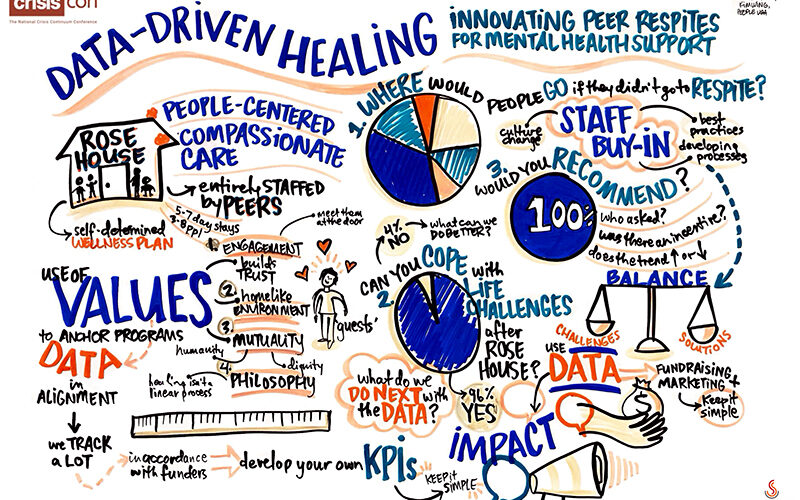 crisis con
The National Crisis Continuum Conference
PEOPLE USA
DATA-DRIVEN HEALING
INNOVATING PEER RESPITES
FOR MENTAL HEALTH SUPPORT
ROSE
HOUSE
PEOPLE-CENTERED
COMPASSIONATE
CARE
entirely STAFFED
by PEERS
self-determined
WELLNESS PLAN
5-7 day stays
3-8 ppl
meet them
at the door
1. ENGAGEMENT
builds
TRUST
2.
homelike
ENVIRONMENT
3.
MUTUALITY
humanity
dignity
4.
PHILOSOPHY
healing isn't a
linear process
"guests"
USE OF
VALUES
to ANCHOR PROGRAMS
DATA
in
ALIGNMENT
we TRACK
A LOT
in accordance
with funders
develop your own KPIs
KEEP it
SIMPLE
1. WHERE WOULD
PEOPLE GO if they didn't go to RESPITE?
culture
change
STAFF
BUY-IN
best
practices
developing
processes
3.
WOULD YOU RECOMMEND?
100%
who asked?
was there an incentive?
does the trend ↑ or ↓
4%
NO
what can we
DO BETTER?
2. CAN YOU COPE
with
LIFE
CHALLENGES
after
ROSE
HOUSE?
96%
YES
what do we
DO NEXT with
the DATA?
BALANCE
CHALLENGES
SOLUTIONS
USE
DATA
FUNDRAISING
MARKETING +
Keep it
simple
$
IMPACT